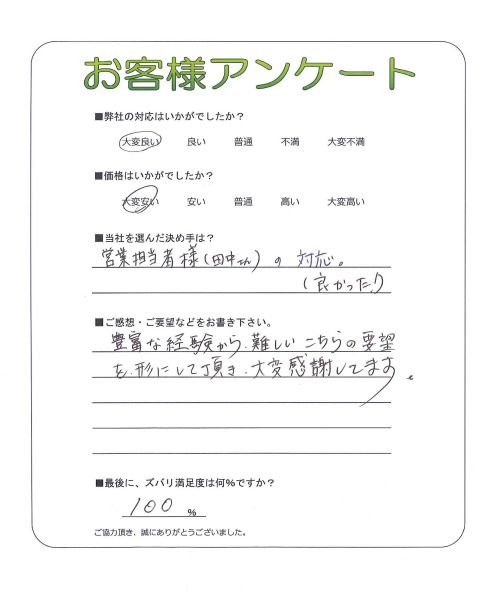 お客様アンケート
■弊社の対応はいかがでしたか？
大変良い 良い 普通 不満 大変不満
■価格はいかがでしたか？
大変安い 安い 普通 高い 大変高い
■当社を選んだ決め手は？
営業担当者様（田中さん）の対応。
（良かった！）
■ご感想・ご要望などをお書き下さい。
豊富な経験から、難しいこちらの要望
を、形にして頂き、大変感謝してます。
■最後に、ズバリ満足度は何％ですか？
100％
ご協力頂き、誠にありがとうございました。